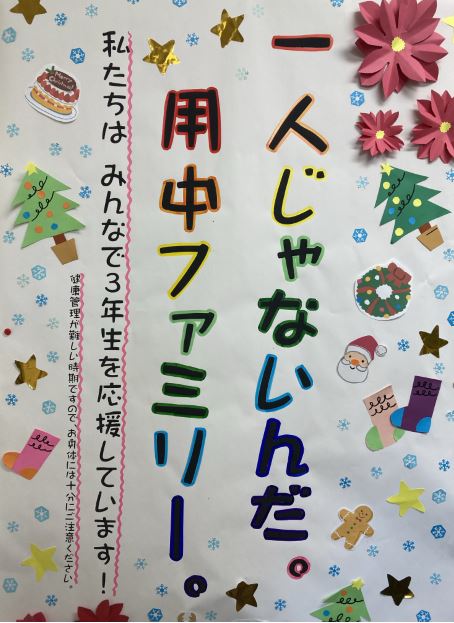 一人じゃないんだ。
用中ファミリー。
私たちは みんなで3年生を応援しています!
健康管理が難しい時期ですので、お身体には十分にご注意ください。
Merry Christmas!